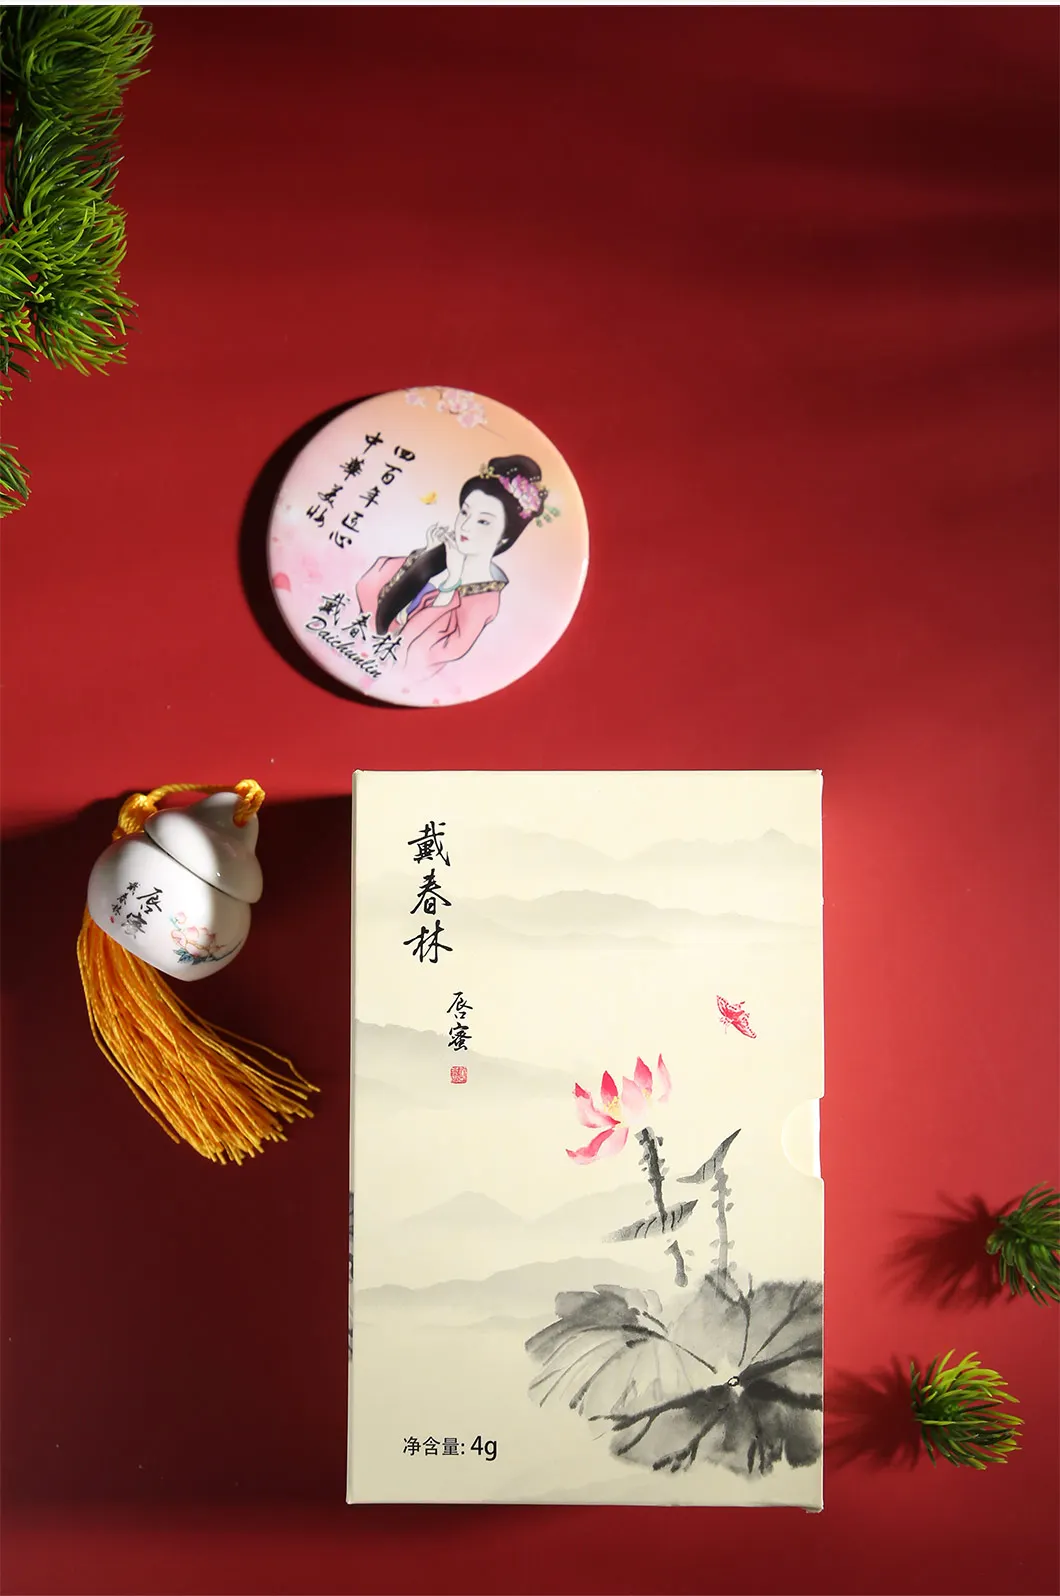 四百年匠心
中華美妝
戴春林
Daichunlin
唇蜜
戴春林
戴春林
唇蜜
净含量: 4g